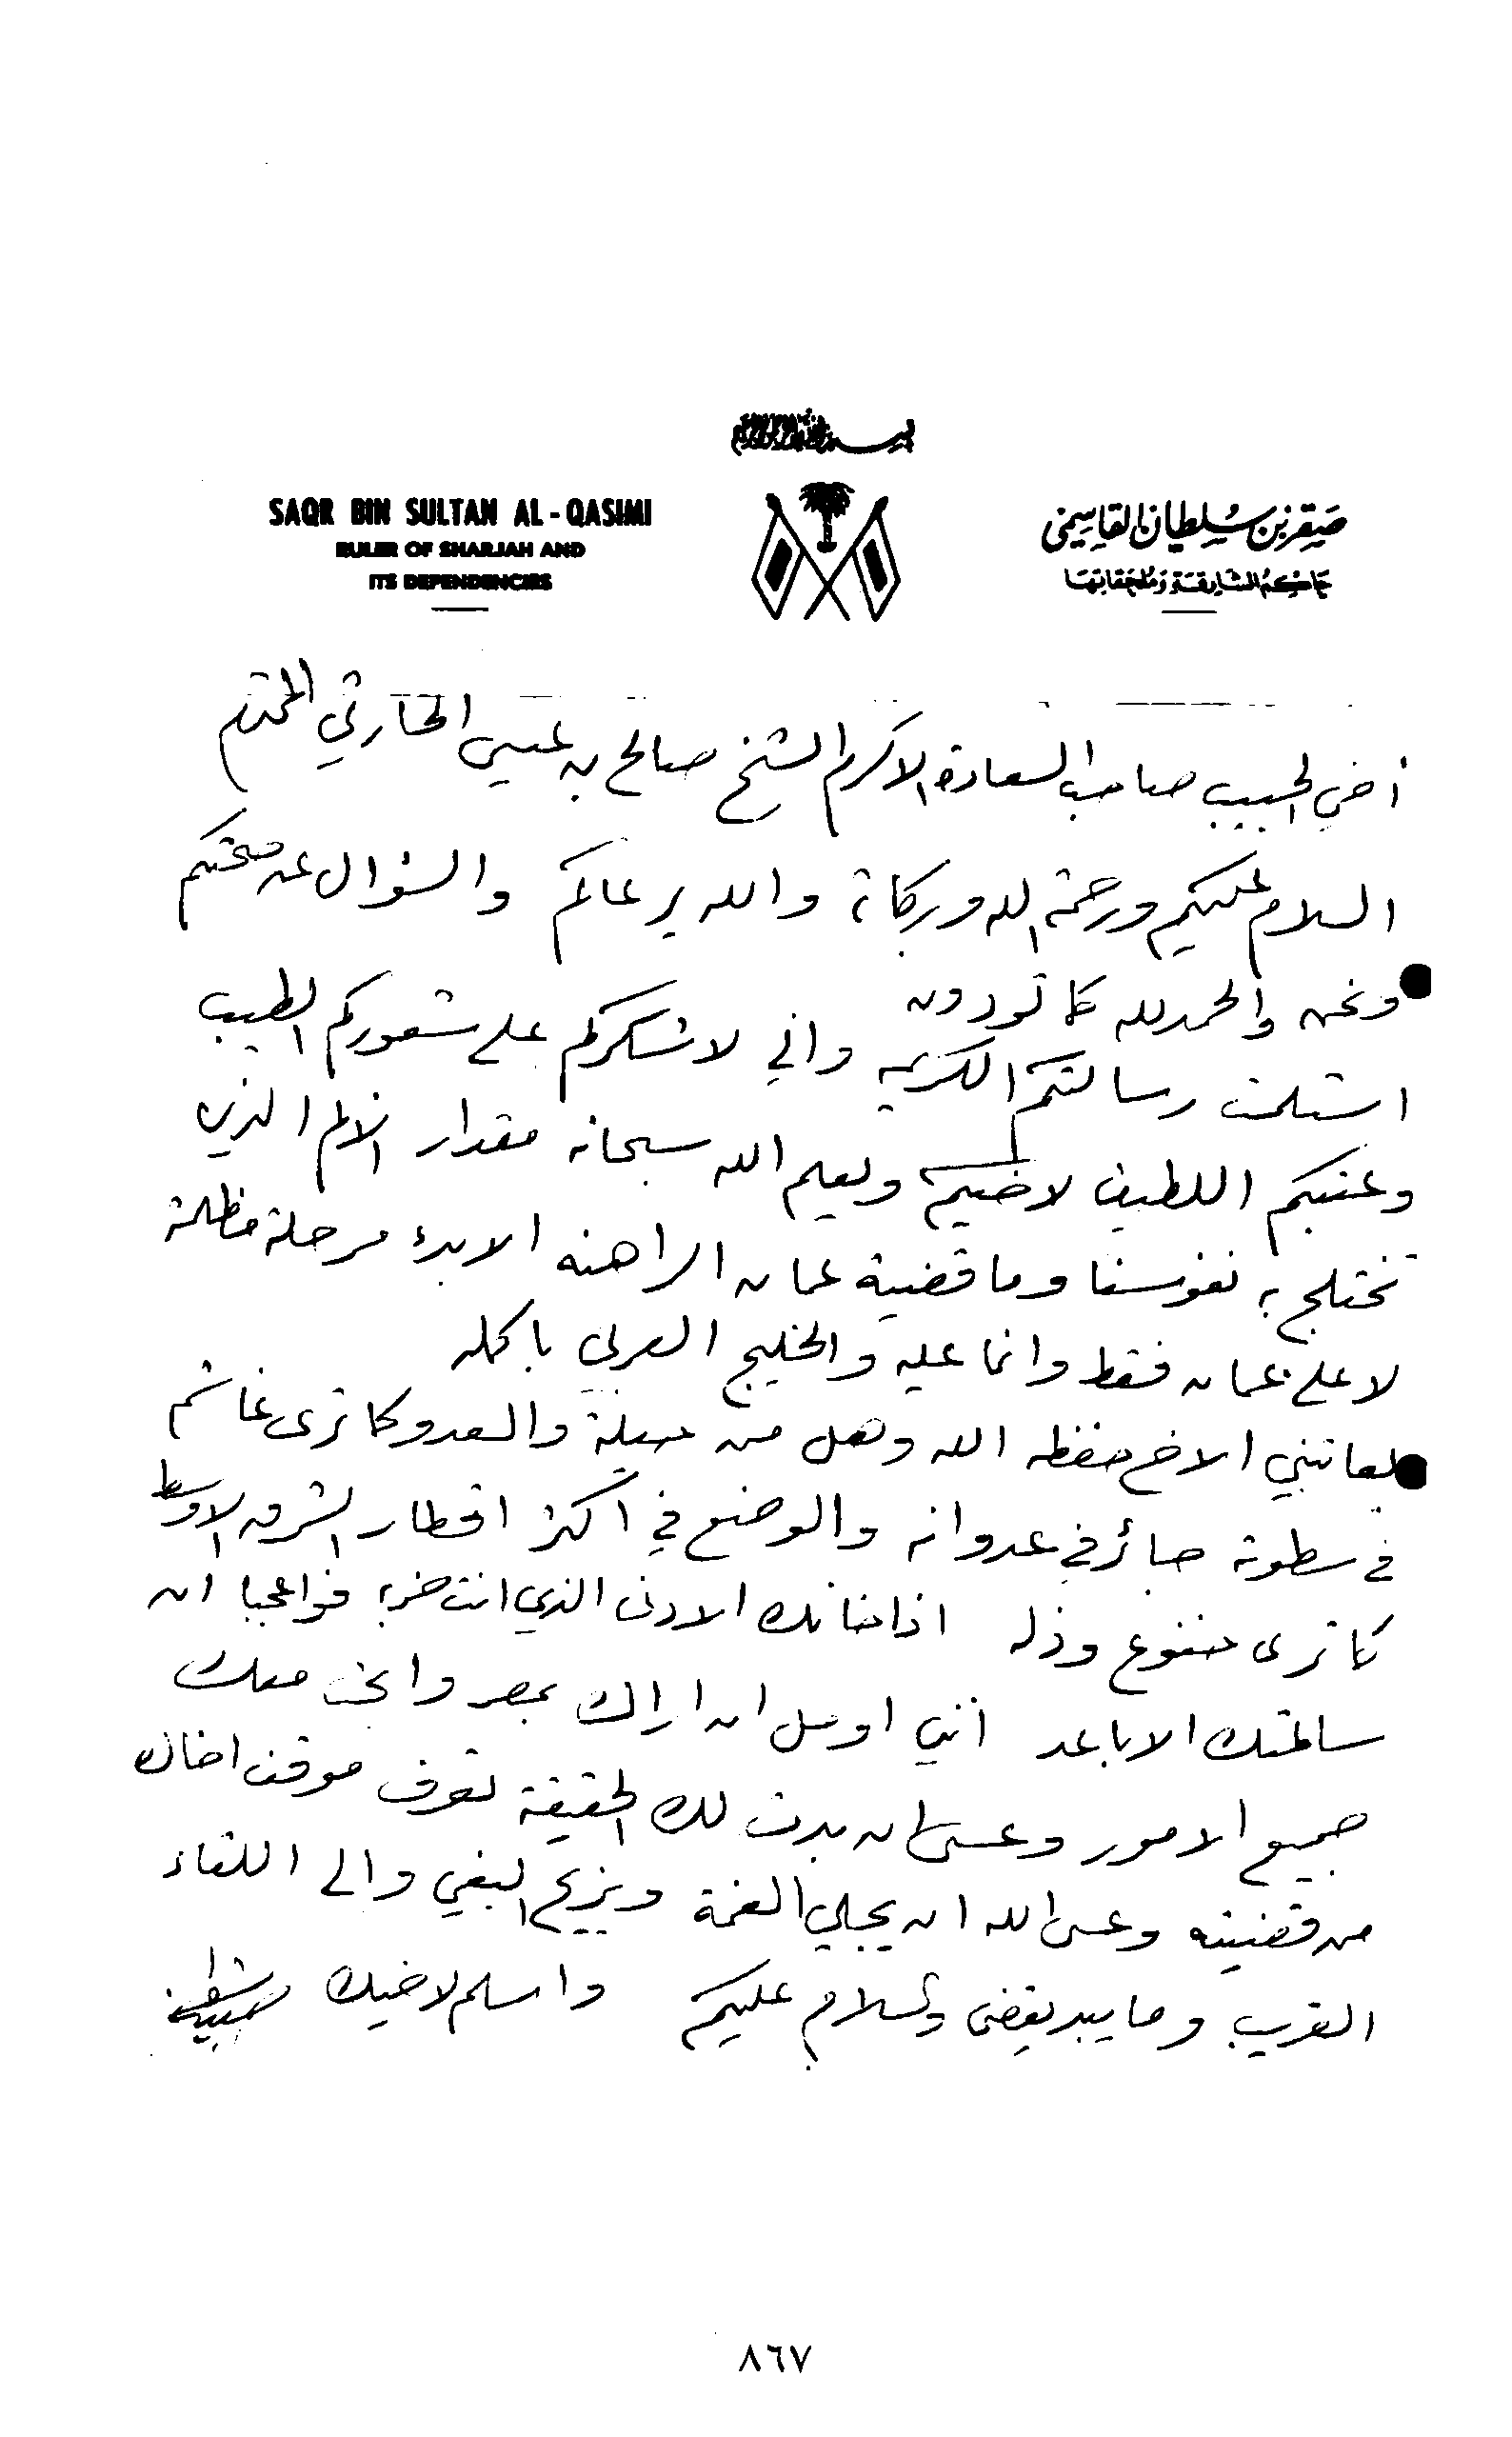 بسم الله الرحمن الرحيم
SAQR BIN SULTAN AL-QASIMI
RULER OF SHARJAH AND
ITS DEPENDENCIES
صقر بن سلطان القاسمي
حاكم الشارقة وملحقاتها
أخي الحبيب صاحب السعادة الاكرم الشيخ صالح بن عيسى الحارثي المحترم
السلام عليكم ورحمة الله وبركاته والله يرعاكم والسؤال عن صحتكم
ونحن والحمد لله كما تودون
استلمت رسالتكم الكريمه واني لاشكركم على شعوركم الطيب
وعتبكم اللطيف لاخيكم ويعلم الله سبحانه مقدار الالم الذي
تختلج به نفوسنا وما قضية عمان الراهنه الا بدء مرحلة مظلمة
لا على عمان فقط وانما عليه والخليج العربي باكمله
يعاتبني الاخ حفظه الله وهل من حيلة والعدو كما ترى غاشم
في سطوته جائر في عدوانه والوضع في اكثر اقطار الشرق الاوسط
كما ترى خنوع وذله اذا خانك الادنى الذي انت حزبه فواعجبا ان
سالمتك الاباعد انني اومل ان اراك بمصر وابحث معك
جميع الامور وعسى ان بدت لك الحقيقة تعرف موقف اخاك
من قضيته وعسى الله ان يجلي الغمة ويزيح البغي والى اللقاء
القريب وما يبد يقضى والسلام عليكم واسلم لاخيك
٨٦٧